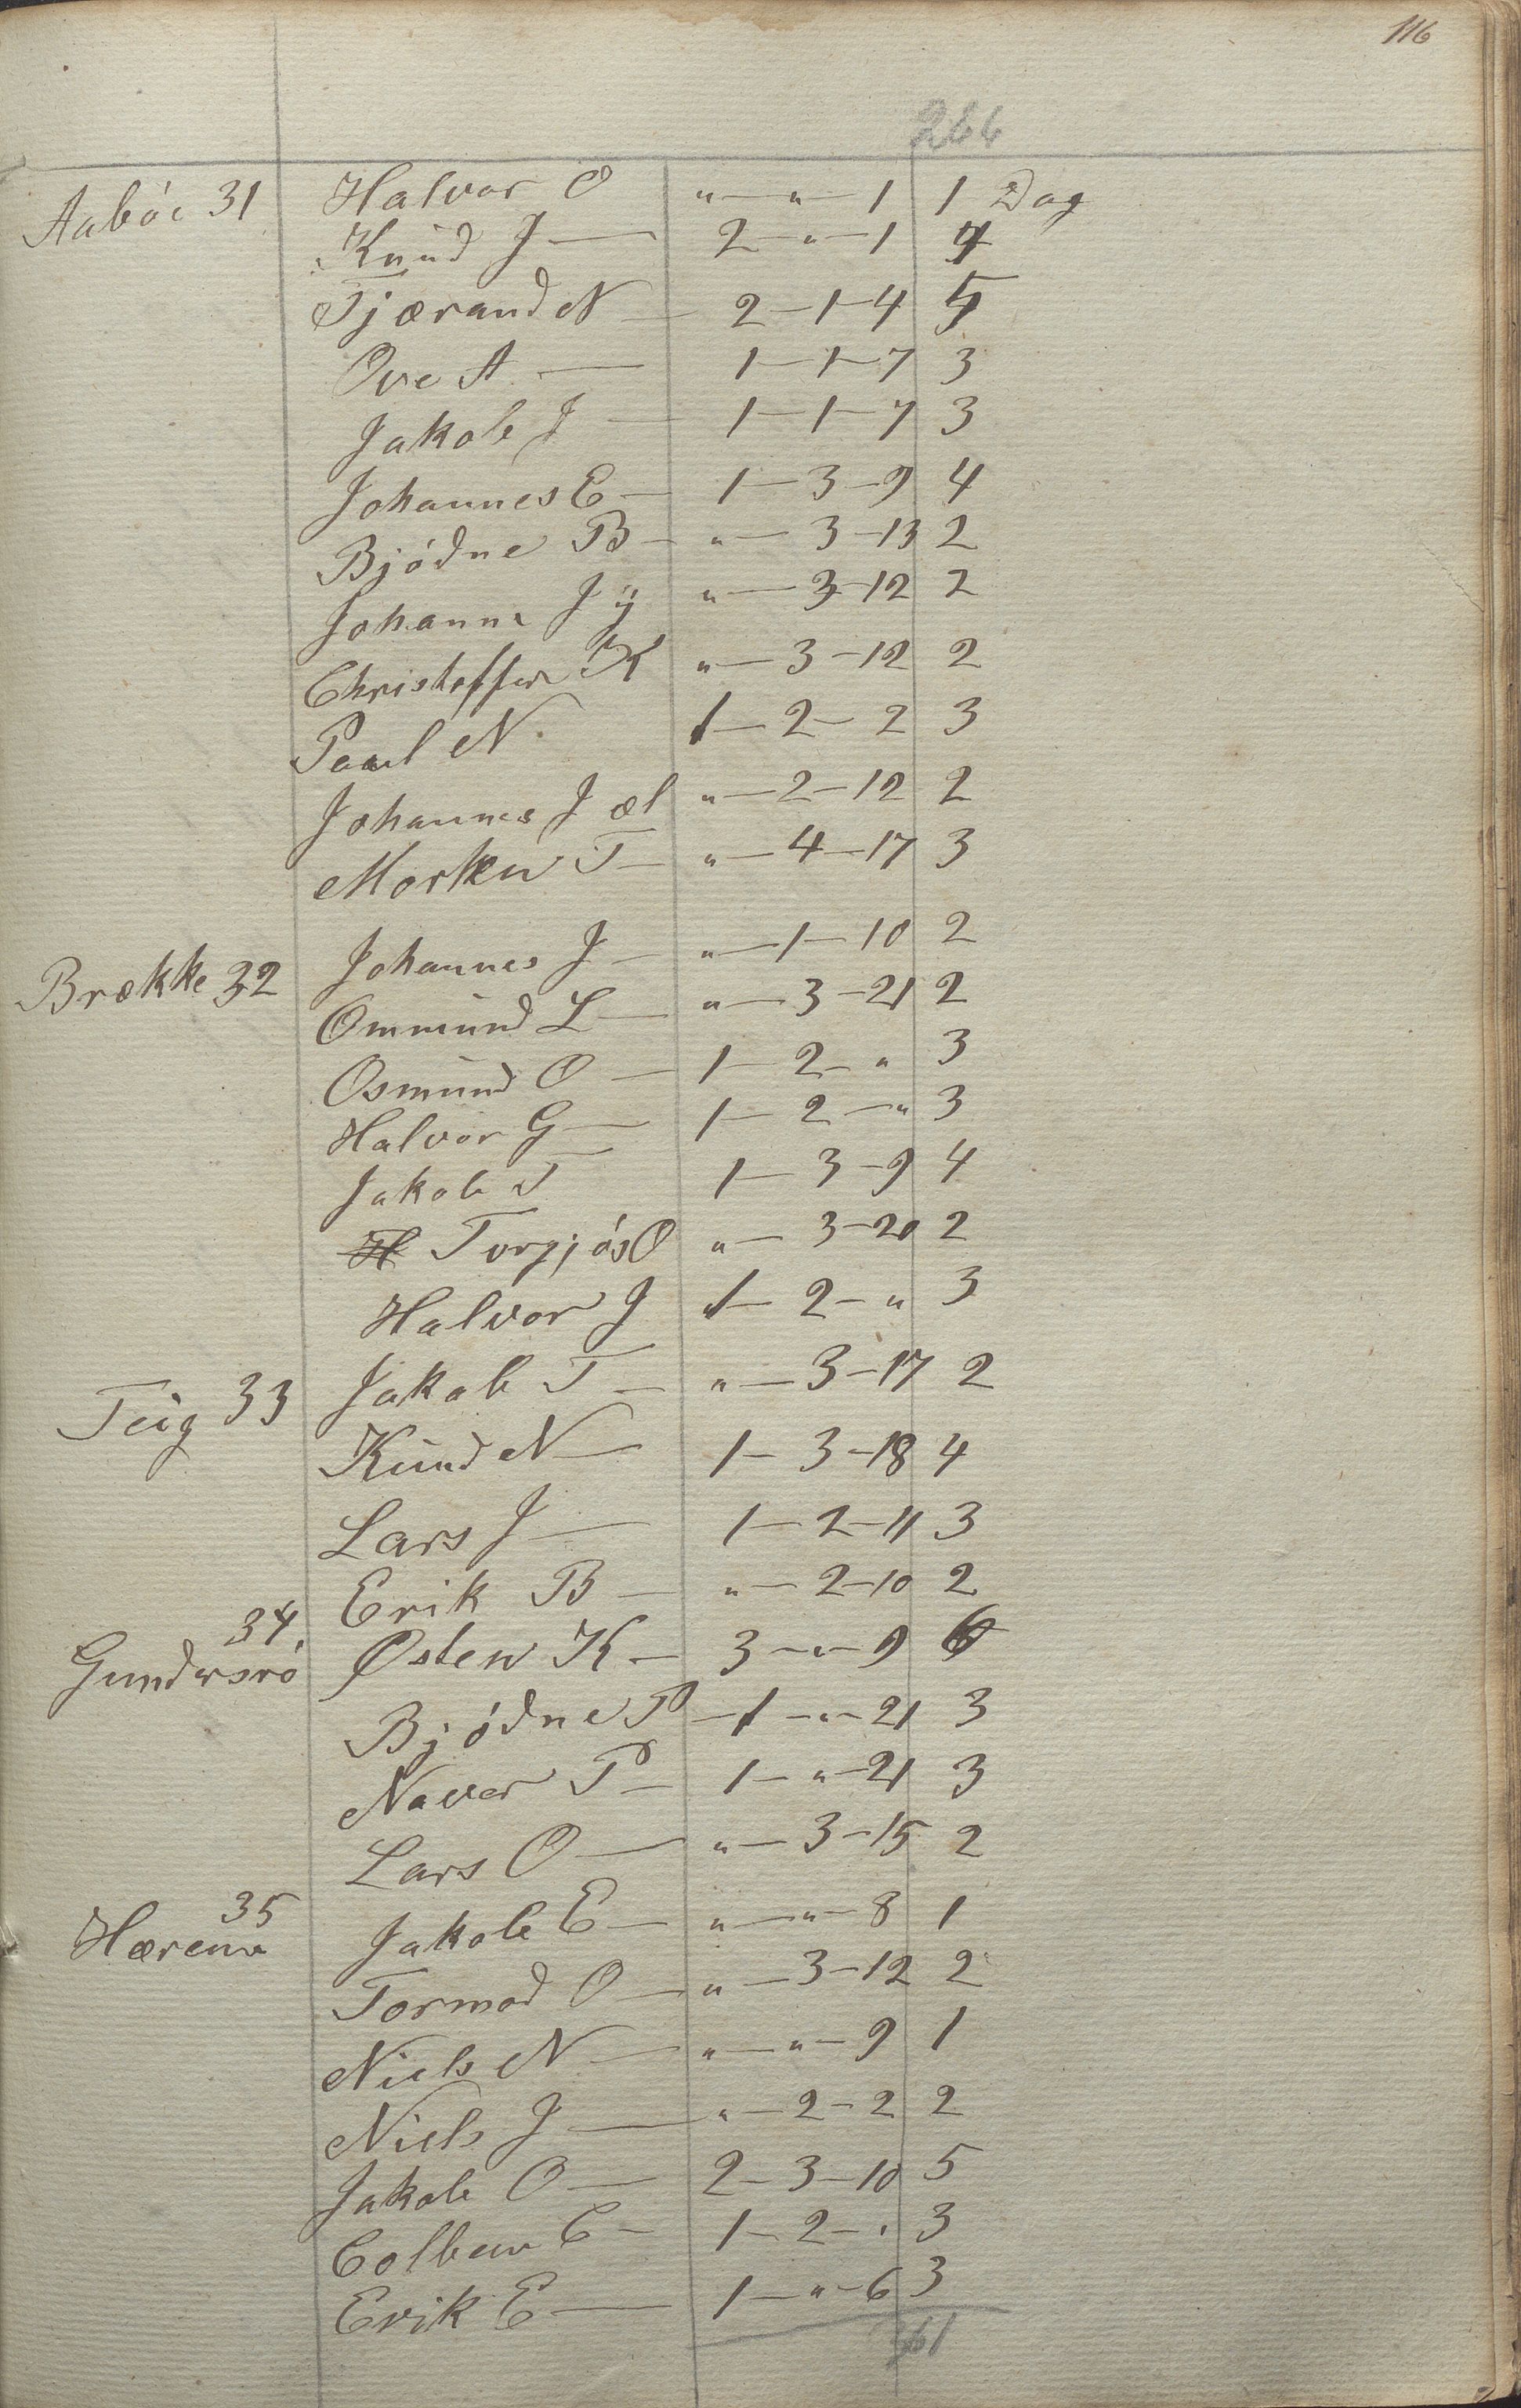 116
266
Aaböe 31 Halvor O " — " — 1 1 Dag
Knud J — 2 — " — 1 4
Tjærand N — 2 — 1 — 4 5
Ove A — 1 — 1 — 7 3
Jakob J — 1 — 1 — 7 3
Johannes E — 1 — 3 — 9 4
Bjödne B — " — 3 — 13 2
Johanns J y " — 3 — 12 2
Christoffer K " — 3 — 12 2
Paul N 1 — 2 — 2 3
Johannes J æl " — 2 — 12 2
Morten T — " — 4 — 17 3
Brække 32 Johannes J — " — 1 — 10 2
Ommund L — " — 3 — 21 2
Osmund O — 1 — 2 — " 3
Halvor G — 1 — 2 — " 3
Jakob T 1 — 3 — 9 4
Torgjös O " — 3 — 20 2
Halvor J 1 — 2 — " 3
Teig 33 Jakob T — " — 3 — 17 2
Knud N — 1 — 3 — 18 4
Lars J — 1 — 2 — 11 3
Erik B — " — 2 — 10 2
34 Gundersrö Østen K — 3 — " — 9 6
Bjödne P — 1 — " — 21 3
Naver P — 1 — " — 21 3
Lars O — " — 3 — 15 2
35 Hærem Jakob E — " — " — 8 1
Tormod O — " — 3 — 12 2
Niels N — " — " — 9 1
Niels J — " — 2 — 2 2
Jakob O — 2 — 3 — 10 5
Colben E — 1 — 2 — " 3
Erik E — 1 — " — 6 3
361